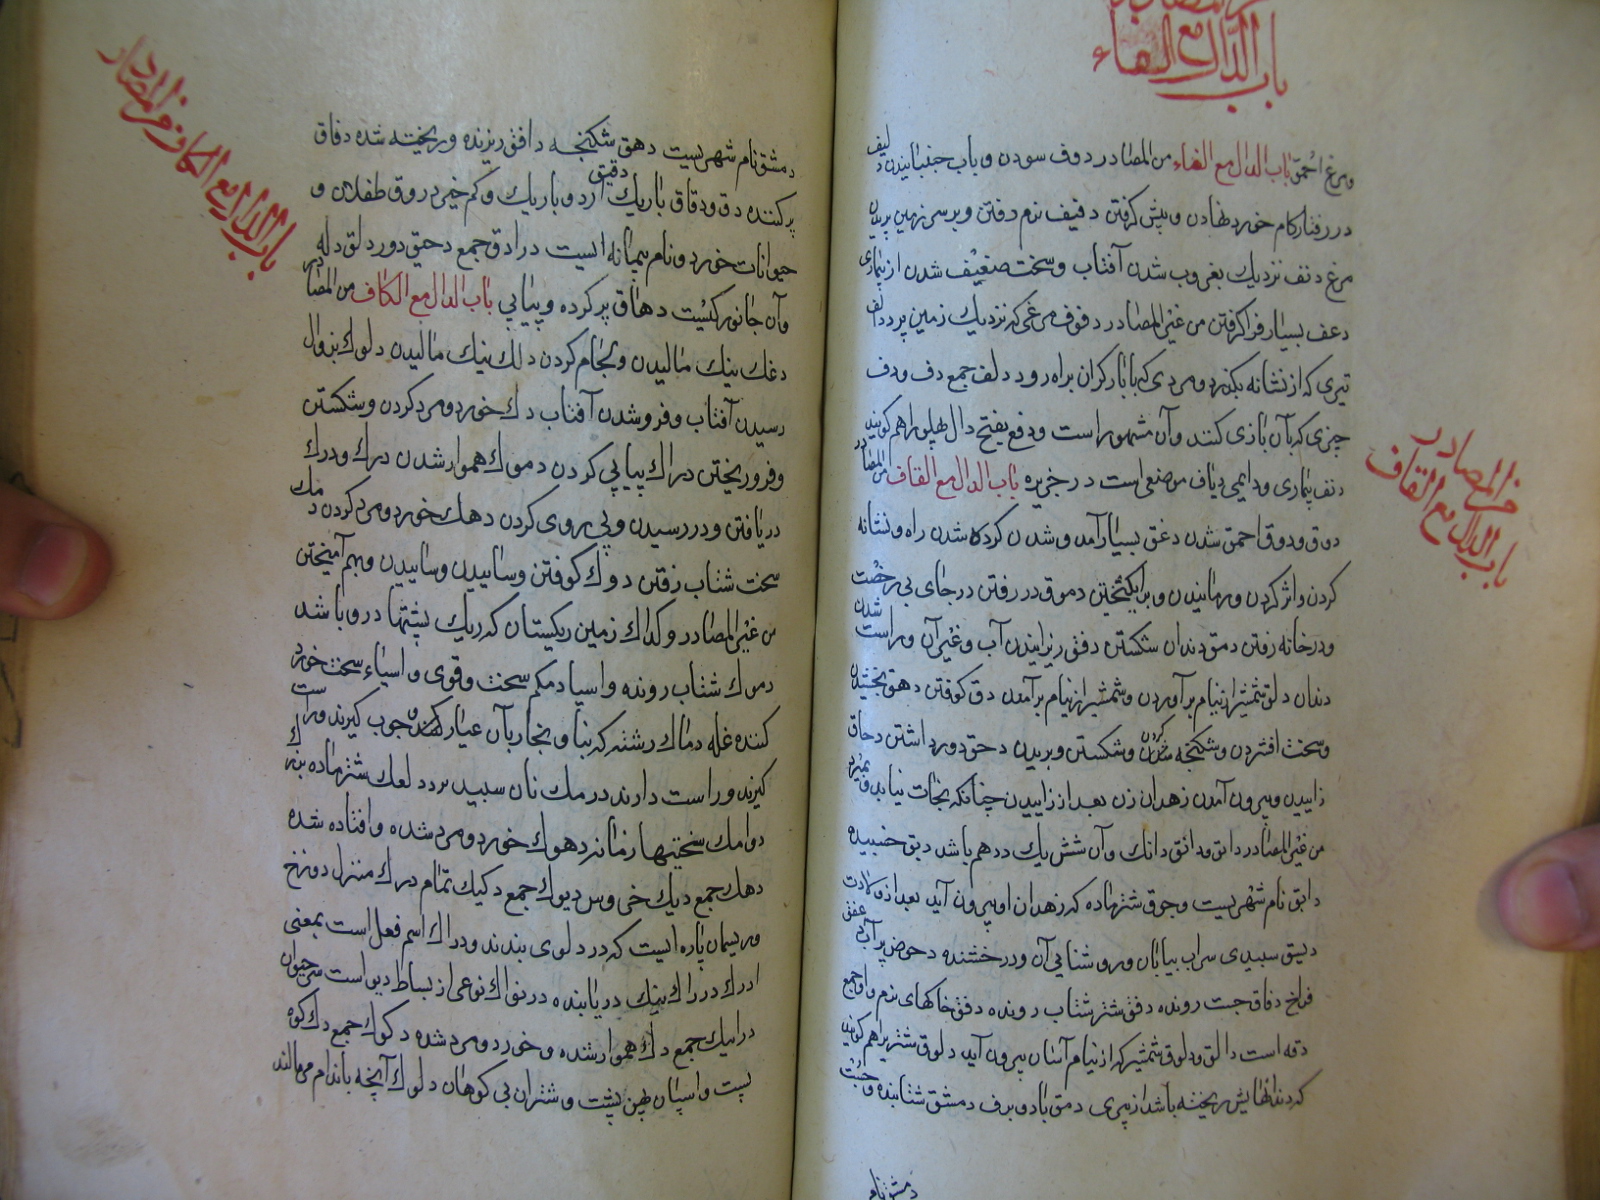 باب الدال مع الفاء
ومرغ احمق باب الدال مع الفاء من المصادر دوف سودن و باب جنبانیدن دلیف
در رفتار گام خورد نهادن و پیش گرفتن دفیف نرم رفتن و بر سر زمین پریدن
مرغ دنف نزدیک بغروب شدن آفتاب و سخت ضعیف شدن از بیماری
دعف بسیار فرا گرفتن من غیر المصادر دفوف مرغی که نزدیک زمین پرد دالف
تیری که از نشانه بگذرد و مردی که با بار گران براه رود دلف جمع دف ودف
چیزی که بآن بازی کنند و آن مشهور است ودفع بفتح دال پهلو را هم گویند
دنف بیماری ودایمی دیاف موضعی است در جزیره باب الدال مع القاف من المصادر
دوق ودوقا احمق شدن دغق بسیار آمد و شدن کرده شدن راه و نشانه
کردن و اثر کردن و رهانیدن و برانگیختن دموق در رفتن در جای بی رخصت
ودر خانه رفتن دمق دندان شکستن دفق ریزانیدن آب و غیر آن و راست شدن
دندان دلق شمشیر از نیام برآوردن و شمشیر از نیام برآمدن دق کوفتن دهق بخشیدن
وسخت افشردن و شکنجه کردن وشکستن و بریدن دحق دور داشتن دحاق
زاییدن و بیرون آمدن زهدان زن بعد از زاییدن چنانکه نجات نیابد و بمیرد
من غیر المصادر دانق ودانق دانگ و آن شش یک درهم باشد دبق چسبیده
دابق نام شهریست و حوق شتر ماده که زهدان او بیرون آید بعد از ولادت
دیسق سپیدی سراب بیابان و روشنایی آن و درخشنده و حوض پر آب
فراخ دفاق جست رونده دفق شتر شتاب رونده دقق خاکهای نرم و او جمع
دقه است دالق ودلوق شمشیر که از نیام آسان بیرون آید دلوق شتر پیر را هم گویند
که دندانهایش ریخته باشد از پیری دمق باد و برف دمشق شتابنده و جست
دمشق نام
من المصادر
باب الدال مع القاف
دمشق نام شهریست دهق شکنجه دافق ریزنده و ریخته شده دهاق
پر کننده دق ودقاق باریک دقیق آرد و باریک و کم خیر دروق طفلان و
حیوانات خورد و نام پیمانه ایست درادق جمع دحیق دور دلق دله
وآن جانورکیست دهاق پر کرده و پیاپی باب الدال مع الکاف من المصادر
دعک نیک مالیدن و لجام کردن دلک نیک مالیدن دلوک بزوال
رسیدن آفتاب و فرو شدن آفتاب دک خورد و مرد کردن و شکستن
وفرو ریختن دراک پیاپی کردن دموک هموار شدن درک ودرک
دریافتن و در رسیدن و پی روی کردن دهک خورد و مرد کردن دمک
سخت شتاب رفتن دوک کوفتن وسانیدن وساییدن و بهم آمیختن
من غیر المصادر دکداک زمین ریگستان که ریگ پشتها درو باشد
دموک شتاب رونده و آسیا دمکمک سخت و قوی و آسیاء سخت خورد
کننده غله دماک رشته که بنا و نجار بآن عیار چوب گیرند و راست
گیرند و راست دارند درمک نان سپید دلعک شتر ماده بزرک
دوامک سختیها زمانه دهوک خورد و مرد شده و افتاده شده
دهک جمع دیک خروس دیوک جمع دکیک تمام درک منزل دوزخ
وریسمان پاره ایست که در دلوی بندند ودراک اسم فعل است بمعنی
ادرک دراک نیک دریابنده درنوک نوعی از بساط
درانیک جمع دک هموار شده و خورد و مرد شده دکوک جمع دک کوه
پست و اسپان پهن پشت و شتران بی کوهان دلوک آنچه باندام می مالند
باب الدال مع الکاف من المصادر